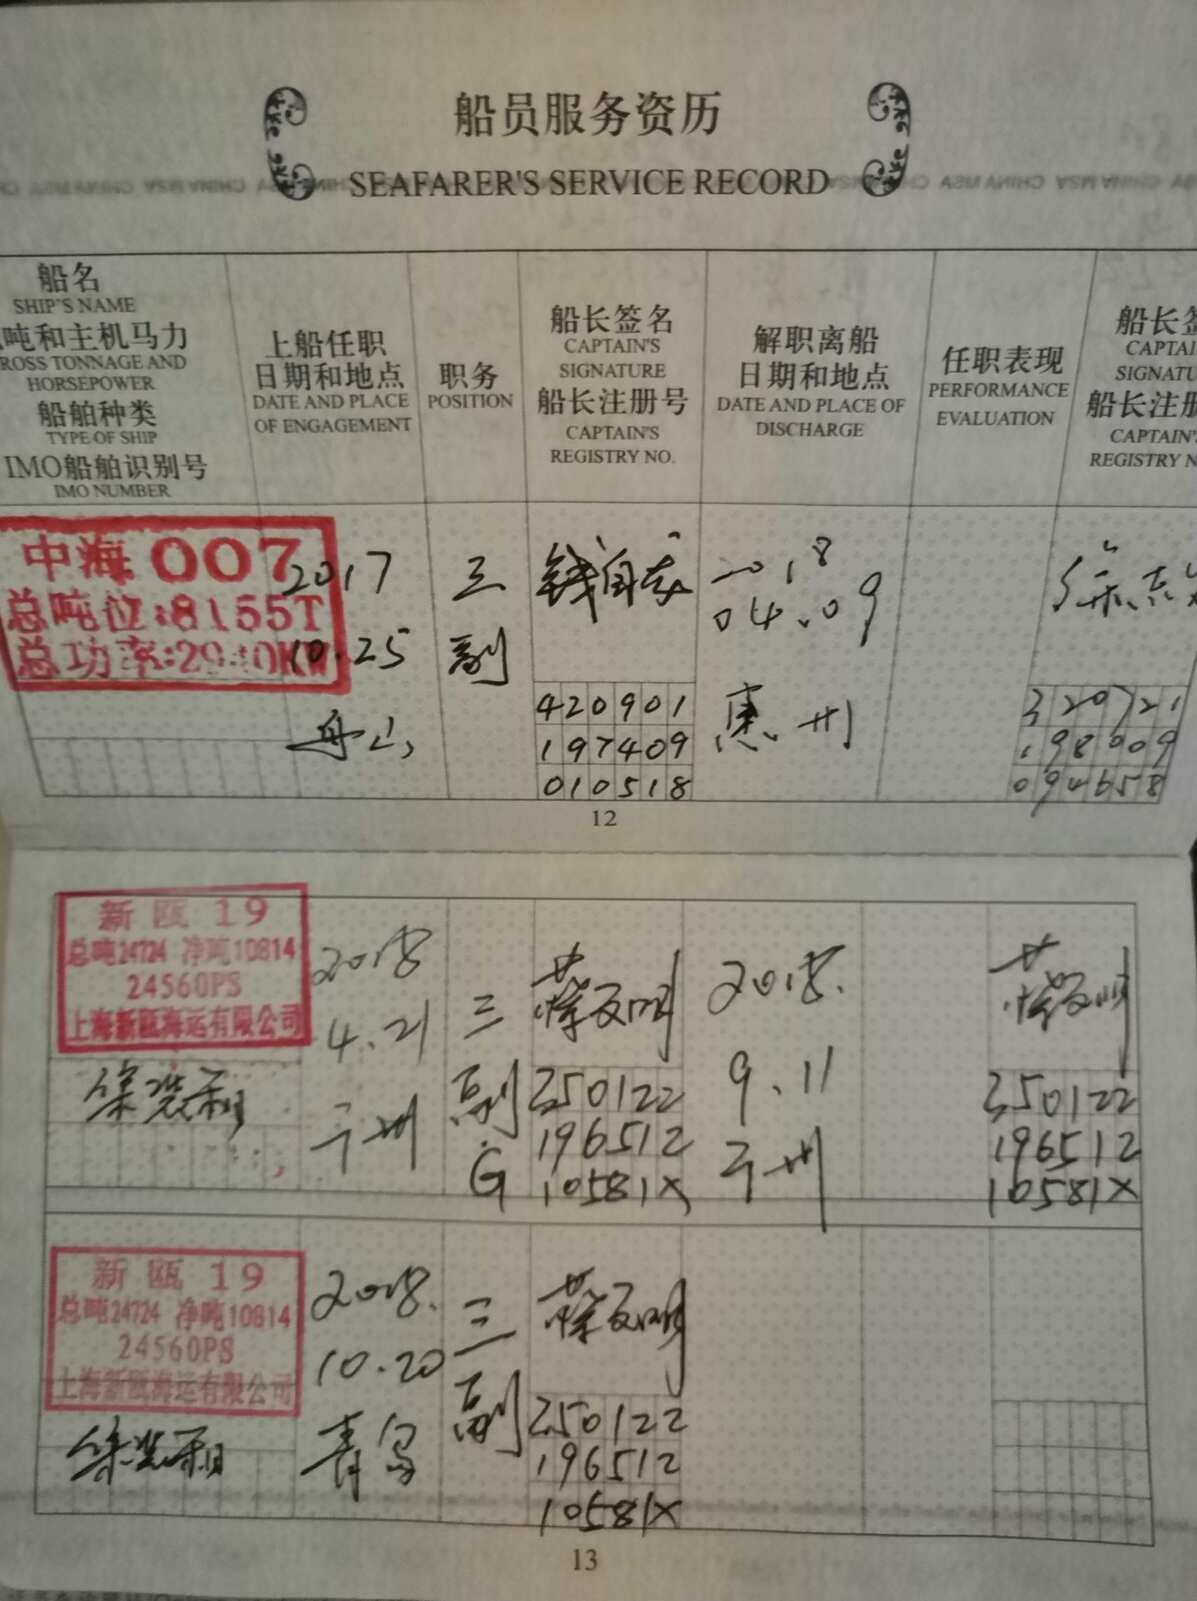 船员服务资历
SEAFARER'S SERVICE RECORD
船名
SHIP'S NAME
吨和主机马力
ROSS TONNAGE AND
HORSEPOWER
船舶种类
TYPE OF SHIP
IMO船舶识别号
IMO NUMBER
上船任职
日期和地点
DATE AND PLACE
OF ENGAGEMENT
职务
POSITION
船长签名
CAPTAIN'S
SIGNATURE
船长注册号
CAPTAIN'S
REGISTRY NO.
解职离船
日期和地点
DATE AND PLACE OF
DISCHARGE
任职表现
PERFORMANCE
EVALUATION
船长签
CAPTAI
SIGNATU
船长注册
CAPTAIN'
REGISTRY N
中海007
总吨位:8155T
总功率:29
2017
10.25
舟山
三
副
420901
197409
010518
2018
04.09
惠州
320721
094658
12
新瓯 19
总吨24724 净吨10814
24560PS
上海新瓯海运有限公司
2018
4.21
三
副
G
350122
196512
10581X
2018.
9.11
350122
196512
10581X
新瓯 19
总吨24724 净吨10814
24560PS
上海新瓯海运有限公司
2018.
10.20
青岛
三
副
350122
196512
10581X
13